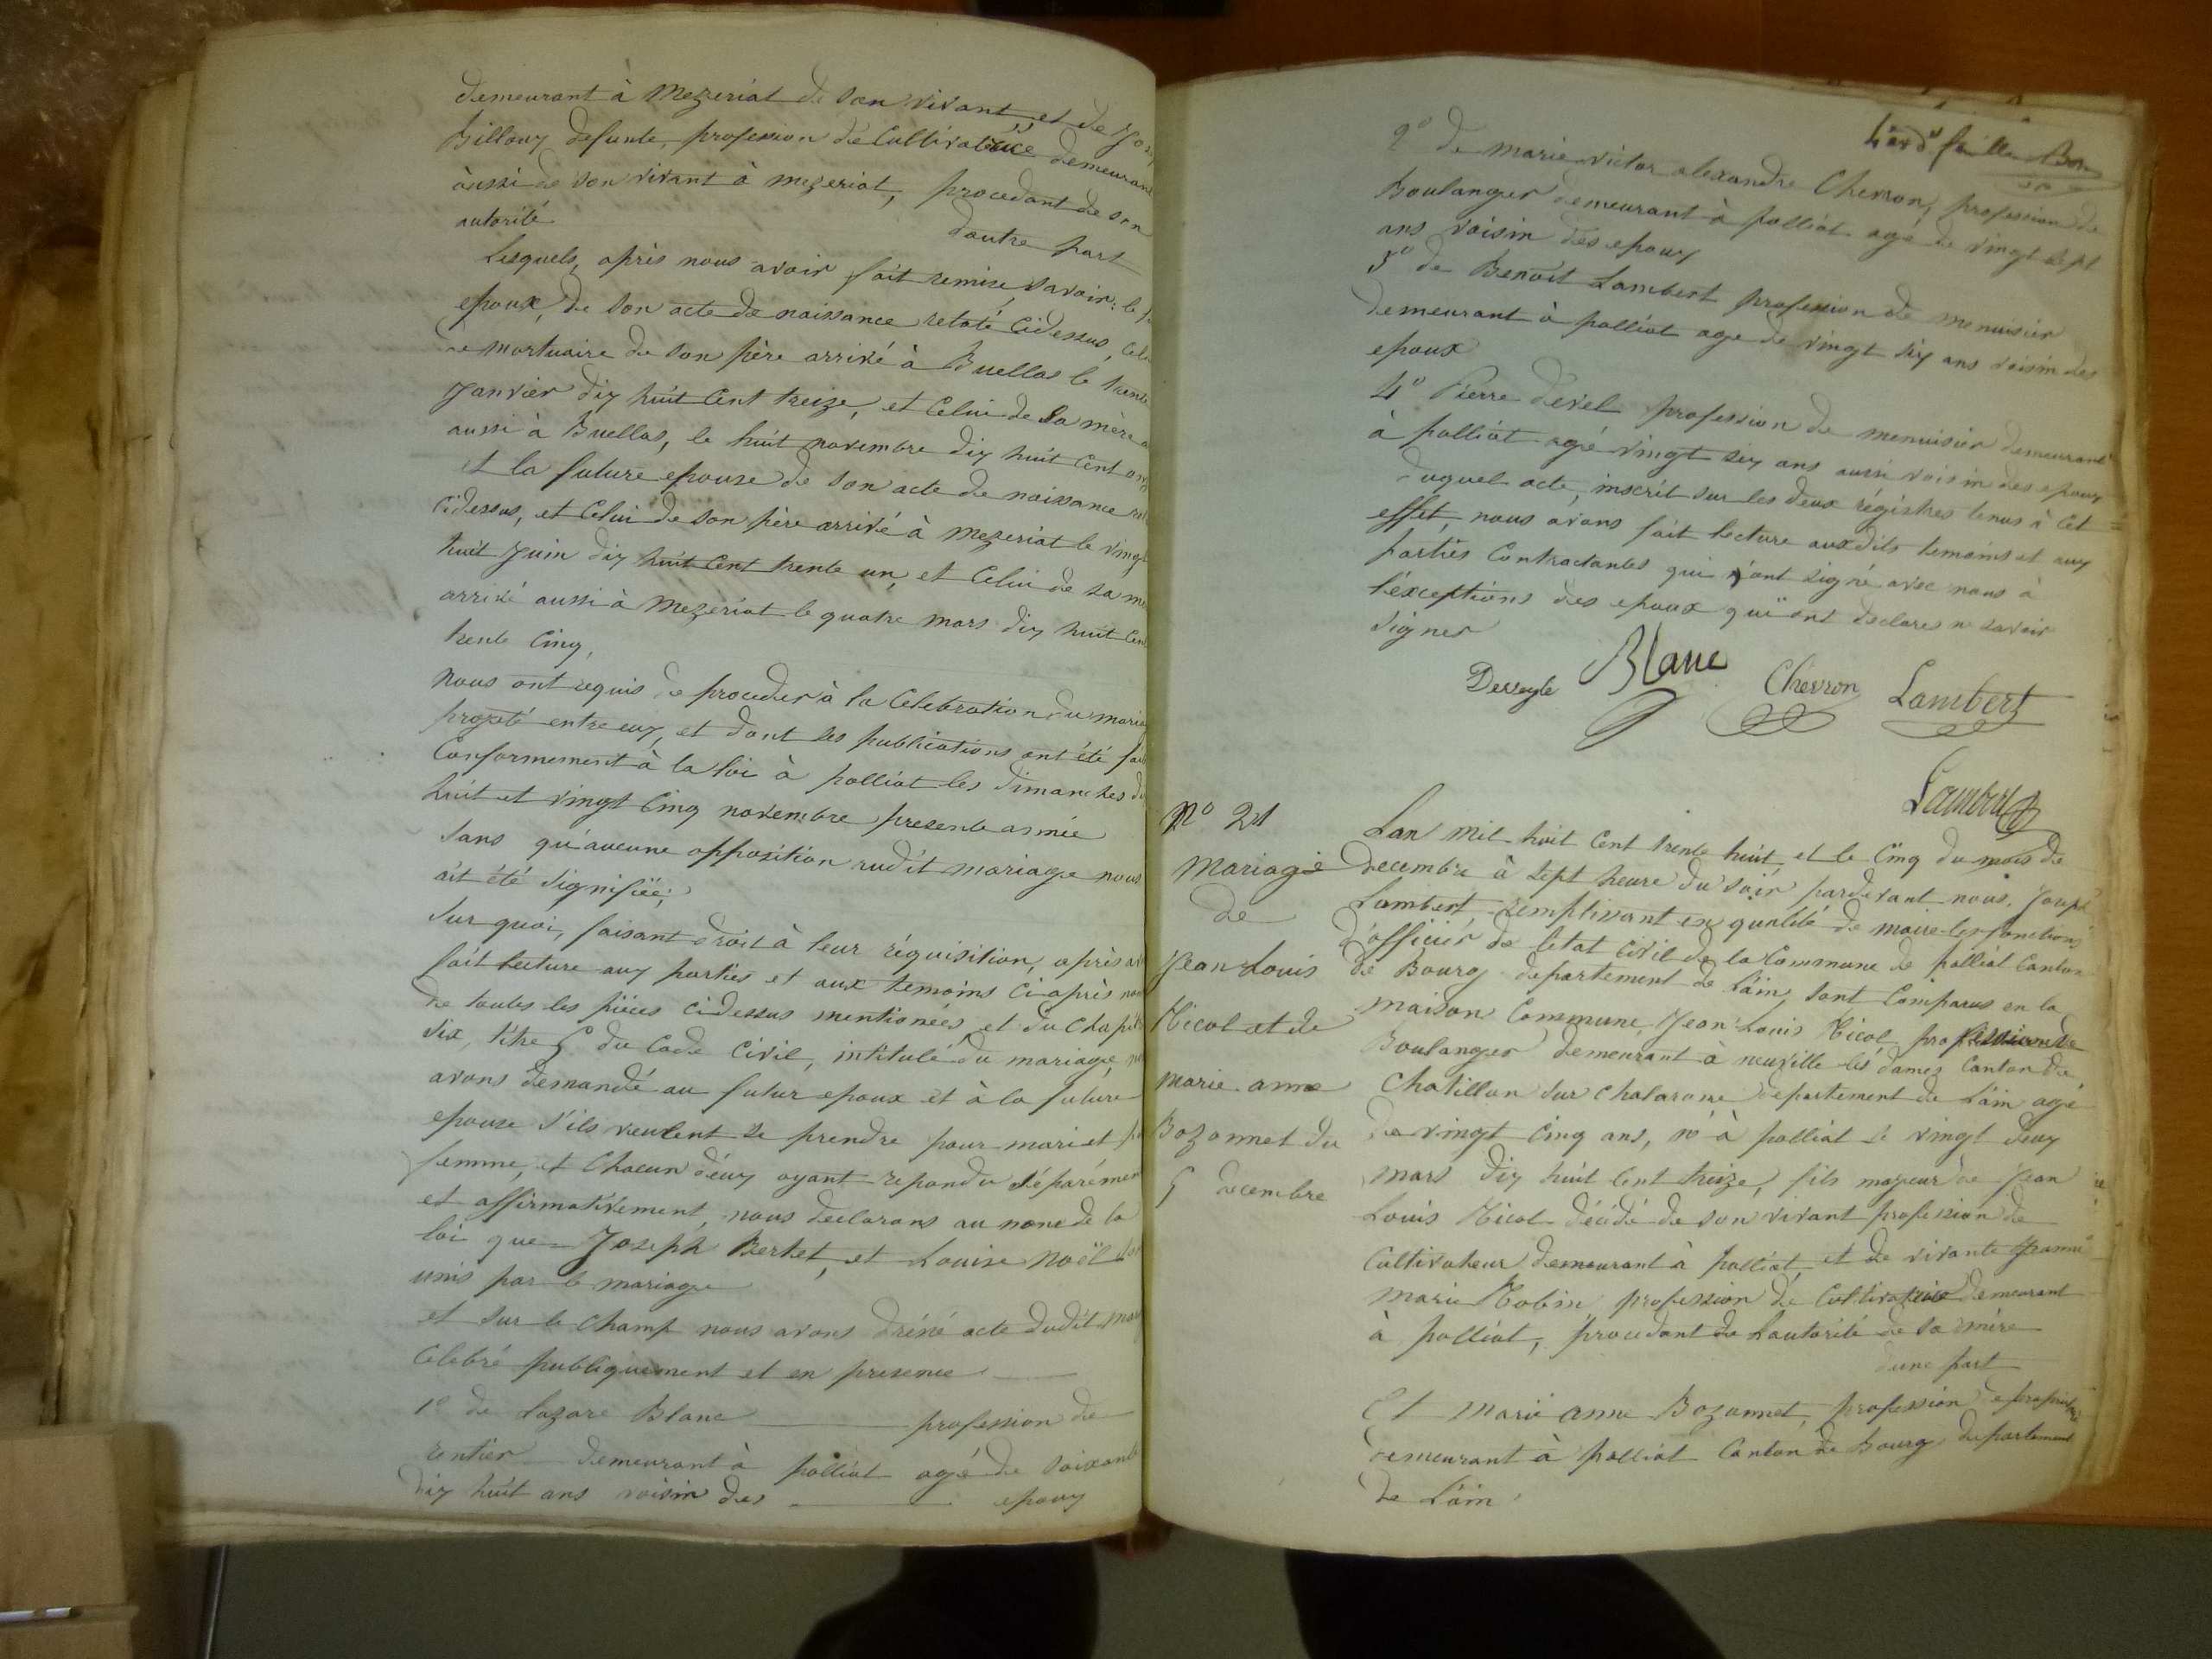 demeurant à Mezeriat de son vivant et de
Billoux defunte, profession de Cultivatrice demeurant
aussi de son vivant à mezeriat, procedant de son
autorité
dautre part
Lesquels, après nous avoir fait remise, savoir: le
epoux, de son acte de naissance relaté cidessus,
mortuaire de son père arrivé à Buellas le trente
Janvier dix huit Cent treize, et Celui de Sa mère
aussi à Buellas, le huit novembre dix huit Cent
et la future epouse de son acte de naissance
cidessus, et Celui de son père arrivé à mezeriat le vingt
huit Juin dix huit Cent trente un, et Celui de sa
arrivé aussi à Mezeriat le quatre mars dix huit Cent
trente Cinq,
nous ont requis de proceder à la Celebration du
projeté entre eux, et dont les publications ont été
Conformement à la loi à polliat les dimanches
huit et vingt Cinq novembre presente année
Sans qu'aucune opposition audit mariage nous
ait été Signifiée;
Sur quoi, faisant droit à leur réquisition, après
fait lecture aux parties et aux temoins Ci après
de toutes les pièces cidessus mentionées, et du
Six, titre 5 du Code Civil, intitulé du mariage,
avons demandé au futur epoux et à la future
epouse s'ils veulent se prendre pour mari et
femme, et Chacun d'eux ayant repondu
et affirmativement, nous declarons au nom de la
loi que Joseph Berket, et Louise Noël
unis par le mariage
et sur le Champ nous avons dréssé acte dudit
Celebré publiquement et en presence
1º de Lazare Blanc profession de
rentier demeurant à polliat agé de
dix huit ans voisin des epoux
feuille
2º de marie victor alexandre Chevron, profession de
Boulanger demeurant à polliat agé de vingt sept
ans voisin des epoux
3º de Benoit Lambert profession de menuisier
demeurant à polliat age de vingt six ans voisin des
epoux
4º Pierre profession de menuisier demeurant
à polliat agé vingt six ans aussi voisin des epoux
duquel acte, inscrit sur les deux régistres tenus à Cet
effet, nous avons fait lecture auxdits temoins et aux
parties Contractantes qui ont signé avec nous à
l'éxceptions des epoux qui ont declarés ne savoir
Signer
Blanc Chevron Lambert
Lambert
Nº 21
Mariage
de
Jean Louis
Nicol et de
marie anne
Bozonnet du
5 decembre
Lan mil huit Cent trente huit, et le Cinq du mois de
decembre à sept heure du soir pardevant nous,
Lambert, remplissant en qualité de maire les fonctions
d'officier de letat Civil de la Commune de polliat Canton
de Bourg departement de Lain, sont Comparus en la
maison Commune, Jean Louis Nicol, profession de
Boulanger demeurant à neuville les dames Canton de
Chatillon sur Chalarone departement de Lain age
de vingt Cinq ans, né à polliat le vingt deux
mars dix huit Cent treize, fils majeur de Jean
Louis Nicol décédé de son vivant profession de
Cultivateur demeurant à polliat, et de vivante Jeanne
marie Robin profession de Cultivatrice demeurant
à polliat, procedant de Lautorité de sa mère
dune part
Et marie anne Bozonnet, profession de
demeurant à polliat Canton de Bourg departement
de Lain